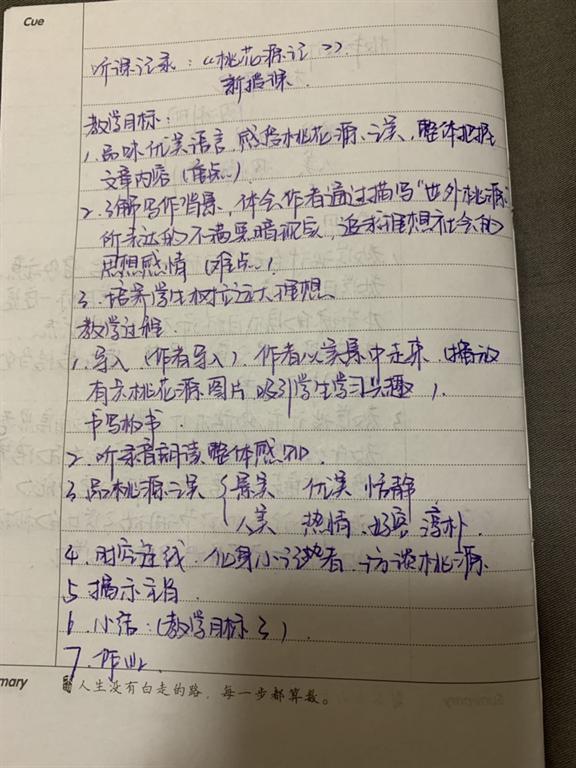 Cue
听课记录：《桃花源记》
新授课
教学目标：
1、品味优美语言，感悟桃花源之美，整体把握
文章内容（重点）
2、了解写作背景，体会作者通过描写"世外桃源"
所表达的不满黑暗现实，追求理想社会的
思想感情（难点）
3、培养学生树立远大理想、
教学过程
1、导入（作者导入）、作者从实景中走来（播放
有关桃花源图片吸引学生学习兴趣）、
书写板书
2、听录音朗读整体感知、
3、品桃源之美 { 景美 优美 恬静
人美 热情、好客 淳朴
4、时空连线、化身小记者、访谈桃源
5、揭示主旨、
6、小结：（教学目标3）、
7、作业、
mary
人生没有白走的路，每一步都算数。